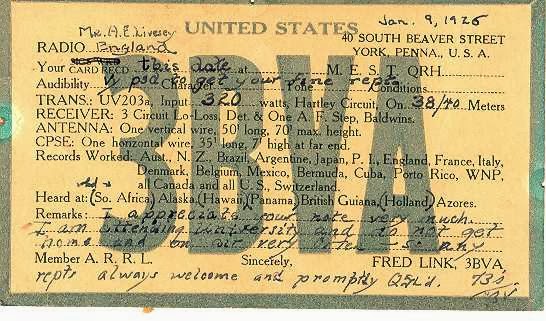 Mr. A. E. Livesey
UNITED STATES
Jan. 9, 1926
40 SOUTH BEAVER STREET
RADIO England
YORK, PENNA., U. S. A.
Your CARD RECD this date at M. E. S. T. QRH
Audibility psd to get your fine repts Character Tone Conditions
TRANS.: UV203a, Input 320 watts, Hartley Circuit, On 38/40 Meters
RECEIVER: 3 Circuit Lo-Loss, Det. & One A. F. Step, Baldwins.
ANTENNA: One vertical wire, 50' long, 70' max. height.
CPSE: One horizontal wire, 35' long, 7' high at far end.
Records Worked: Aust., N. Z., Brazil, Argentine, Japan, P. I., England, France, Italy,
Denmark, Belgium, Mexico, Bermuda, Cuba, Porto Rico, WNP,
all Canada and all U. S., Switzerland.
Heard at: (So. Africa,) Alaska, (Hawaii,) (Panama,) British Guiana, (Holland,) Azores.
Remarks: I appreciate your note very much.
I am attending university and do not get
home and on air very often so any
Member A. R. R. L. Sincerely, FRED LINK, 3BVA
repts always welcome and promptly QSL'd. 73's
3BVA